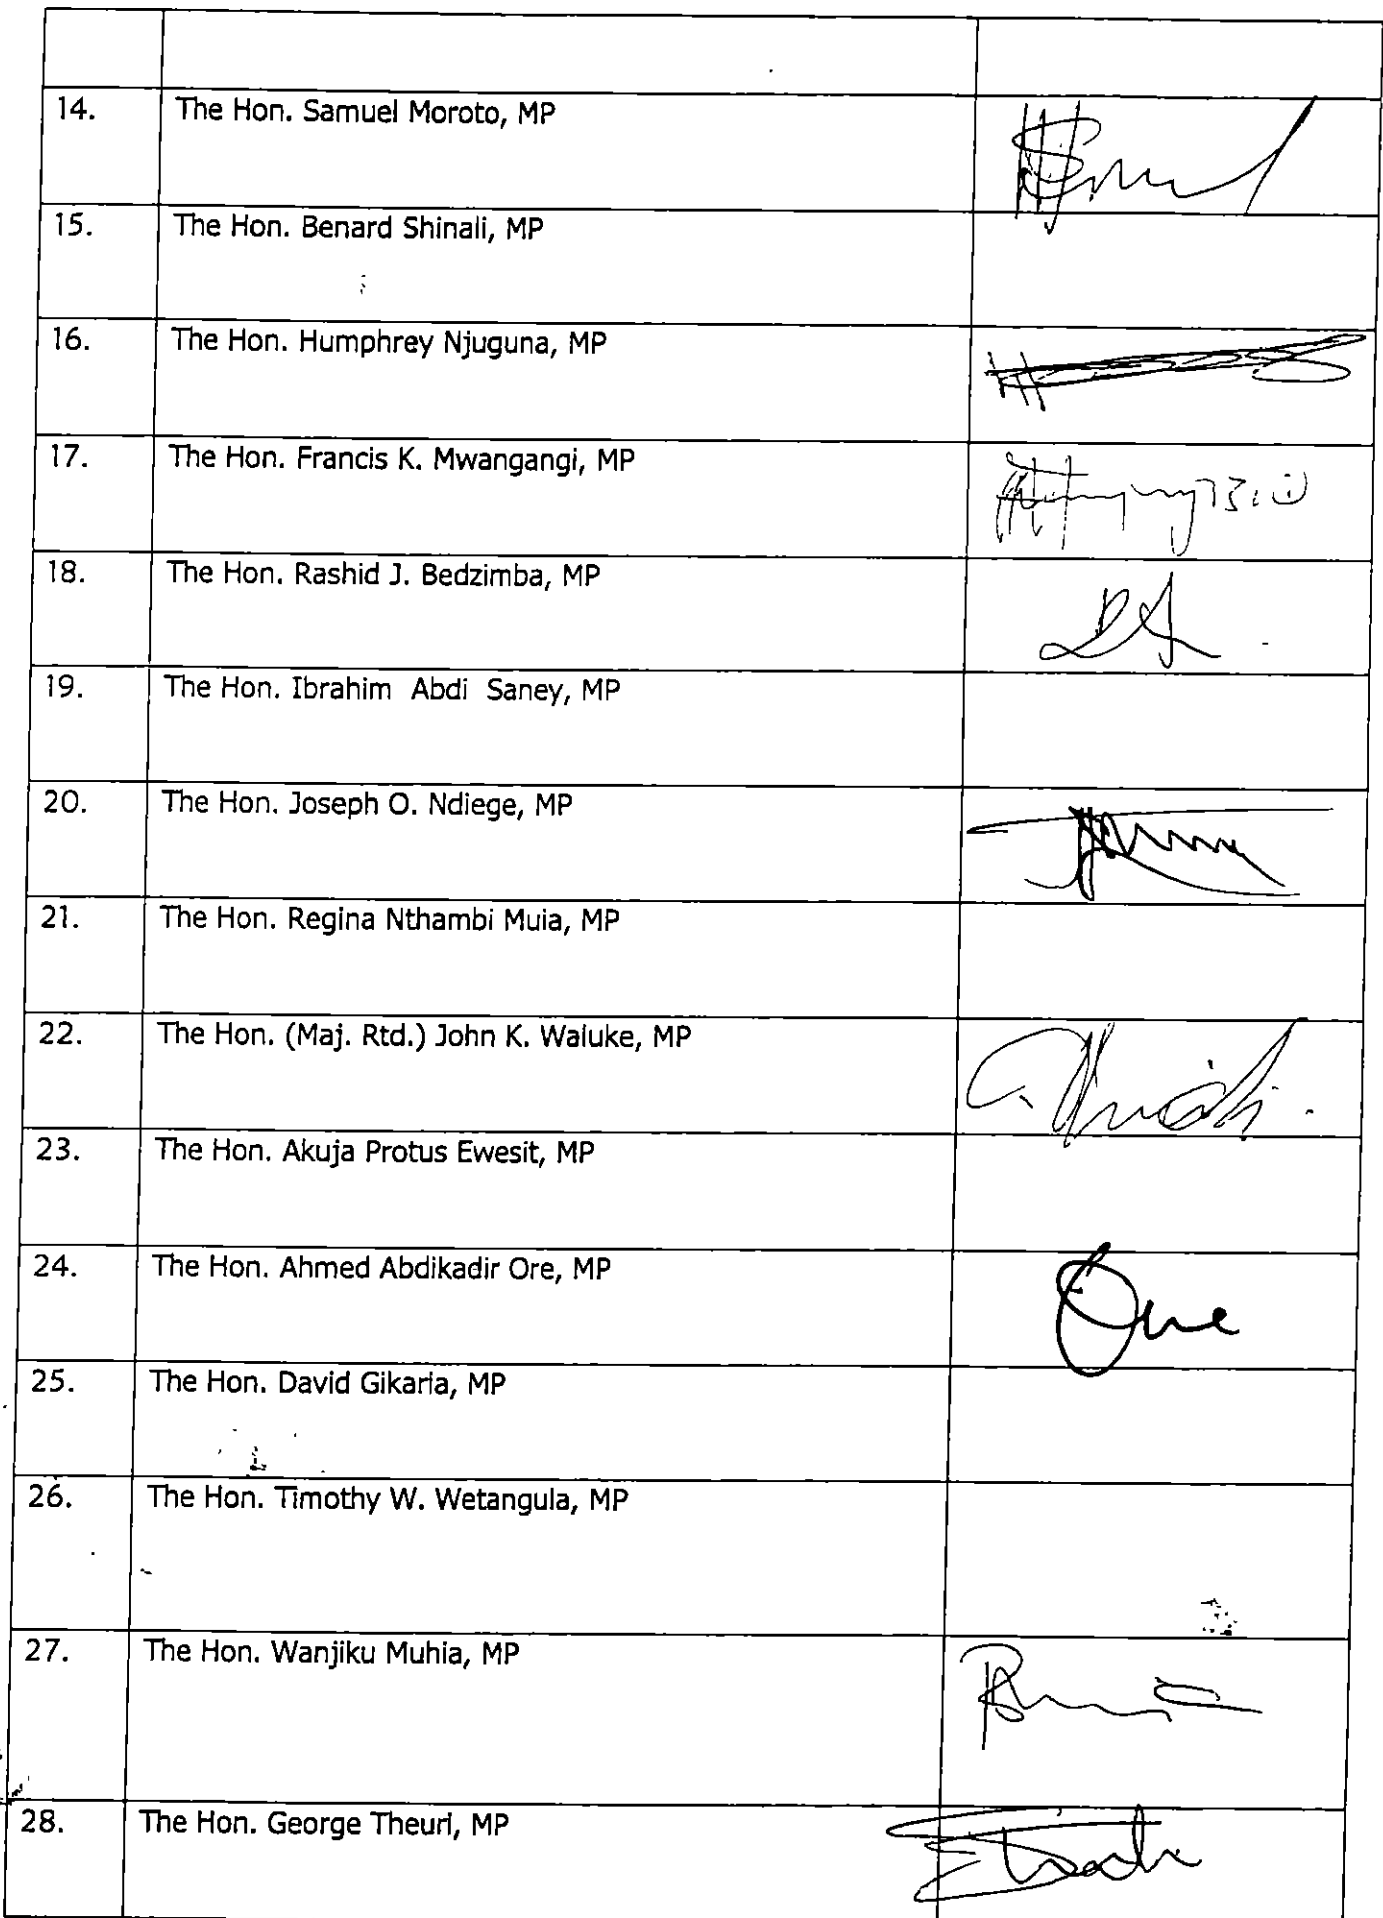 14. The Hon. Samuel Moroto, MP
15. The Hon. Benard Shinali, MP
16. The Hon. Humphrey Njuguna, MP
17. The Hon. Francis K. Mwangangi, MP
18. The Hon. Rashid J. Bedzimba, MP
19. The Hon. Ibrahim Abdi Saney, MP
20. The Hon. Joseph O. Ndiege, MP
21. The Hon. Regina Nthambi Muia, MP
22. The Hon. (Maj. Rtd.) John K. Waluke, MP
23. The Hon. Akuja Protus Ewesit, MP
24. The Hon. Ahmed Abdikadir Ore, MP Ore
25. The Hon. David Gikaria, MP
26. The Hon. Timothy W. Wetangula, MP
27. The Hon. Wanjiku Muhia, MP
28. The Hon. George Theuri, MP